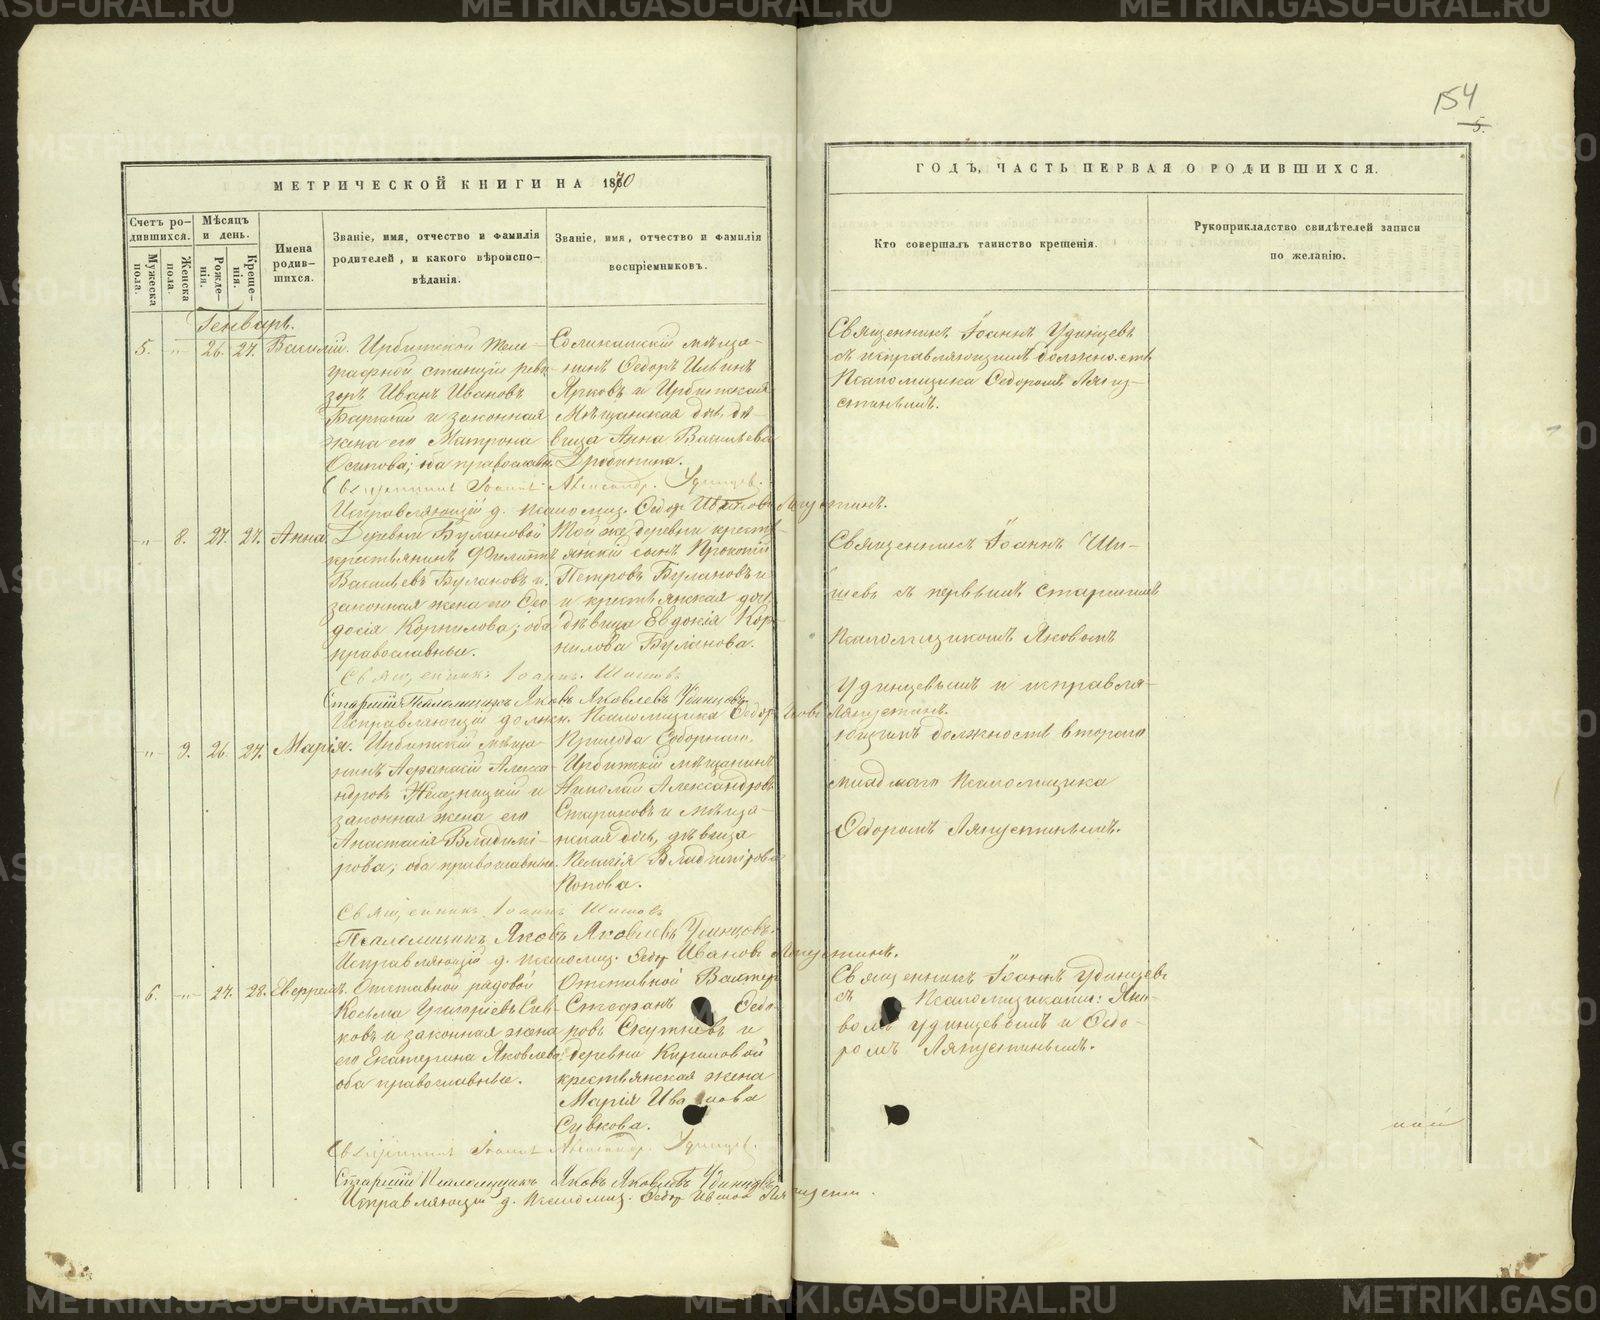 154
5.
МЕТРИЧЕСКОЙ КНИГИ НА 1870
ГОДЪ, ЧАСТЬ ПЕРВАЯ О РОДИВШИХСЯ.
Счетъ ро-
дившихся.
Мужеска
пола.
Женска
пола.
Мѣсяцъ
и день.
Рожде-
нія.
Креще-
нія.
Имена
родив-
шихся.
Званіе, имя, отчество и фамилія
родителей, и какого вѣроиспо-
вѣданія.
Званіе, имя, отчество и фамилія
воспріемниковъ.
Кто совершалъ таинство крещенія.
Рукоприкладство свидѣтелей записи
по желанію.
Генварь.
5. " 26. 27. Василій.
Ирбитской теле-
графной станціи реви-
зоръ Иванъ Ивановъ
и законная
жена его Матрона
Осипова; оба православн.
Соликамскій мѣща-
нинъ Ѳедоръ Ильинъ
Ярковъ и Ирбитская
Мѣщанская дѣ-
вица Анна Васильева
Священникъ Іоаннъ Удинцевъ
съ исправляющимъ должность
Псаломщика Ѳедоромъ Ляпу-
стинымъ.
Священникъ Іоаннъ Александр. Удинцев.
Исправляющій д. псаломщ. Ѳедор Ивановъ Ляпустинъ.
" 8. 27. 27. Анна
Деревни Булановой
крестьянинъ Филиппъ
Васильевъ Булановъ и
законная жена его Ѳео-
досія Корнилова; оба
православные.
Той же деревни крестъ-
янскій сынъ Прокопій
Петровъ Булановъ и
и крестьянская доч.
дѣвица Евдокія Кор-
нилова Буланова.
Священникъ Іоаннъ Ши-
шевъ съ первымъ старшимъ
Псаломщикомъ Яковомъ
Удинцевымъ и исправля-
ющимъ должность втораго
младшаго Псаломщика
Ѳедоромъ Ляпустинымъ.
Священникъ Іоаннъ
Старшій Псаломщикъ Яковъ Яковлевъ Удинцовъ
Исправляющій должн. Псаломщика Ѳедор Ляпустинъ.
" 9. 26. 27. Марія.
Ирбитскій мѣща-
нинъ Аѳанасій Алекса-
ндровъ Железницкій и
законная жена его
Анастасія Владимі-
рова; оба православные.
Прихода Соборнаго
Ирбитскій мѣщанинъ
Николай Александровъ
Стариковъ и мѣща-
нская дочь, дѣвица
Пелагія Владимірова
Попова.
Священникъ Іоаннъ
Псаломщикъ Яковъ Яковлевъ Удинцовъ.
Исправляющій д. псаломщ. Ѳедор Ивановъ Ляпустинъ.
6. " 27. 28. Евфремъ.
Отставной рядовой
Козьма Григорьевъ Сив-
ковъ и законная жена
его Екатерина Яковлева;
оба православные.
Отставной Вахтер
Стефанъ Ѳедо-
ровъ и
деревни Кириловой
крестьянская жена
Марія Иванова
Сивкова.
Священникъ Іоаннъ Удинцевъ
съ Псаломщиками: Яко-
вомъ Удинцевымъ и Ѳедо-
ромъ Ляпустинымъ.
Священникъ Іоаннъ Александр. Удинцев.
Старшій Псаломщикъ Яковъ Яковлевъ Удинцовъ
Исправляющій д. псаломщ. Ѳедор Иванов Ляпустин.
METRIKI.GASO-URAL.RU